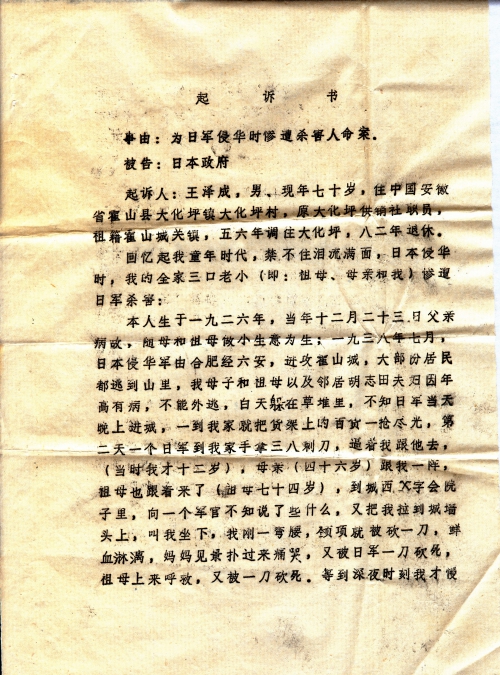 起诉书
事由：为日军侵华时惨遭杀害人命案。
被告：日本政府
起诉人：王泽成，男、现年七十岁，住中国安徽
省霍山县大化坪镇大化坪村，原大化坪供销社职员，
祖籍霍山城关镇，五六年调住大化坪，八二年退休。
回忆起我童年时代，禁不住泪流满面，日本侵华
时，我的全家三口老小（即：祖母、母亲和我）惨遭
日军杀害：
本人生于一九二六年，当年十二月二十三日父亲
病故，随母和祖母做小生意为生；一九三八年七月，
日本侵华军由合肥经六安，进攻霍山城，大部份居民
都逃到山里，我母子和祖母以及邻居胡志田夫妇因年
高有病，不能外逃，白天躲在草堆里，不知日军当天
晚上进城，一到我家就把货架上的百货一抢尽光，第
二天一个日军到我家手拿三八刺刀，逼着我跟他去，
（当时我才十二岁），母亲（四十六岁）跟我一阵，
祖母也跟着来了（祖母七十四岁），到城西 字会院
子里，向一个军官不知说了些什么，又把我拉到城墙
头上，叫我坐下，我刚一弯腰，颈项就被砍一刀，鲜
血淋漓，妈妈见景扑过来痛哭，又被日军一刀砍死，
祖母上来呼救，又被一刀砍死。等到深夜时刻我才慢